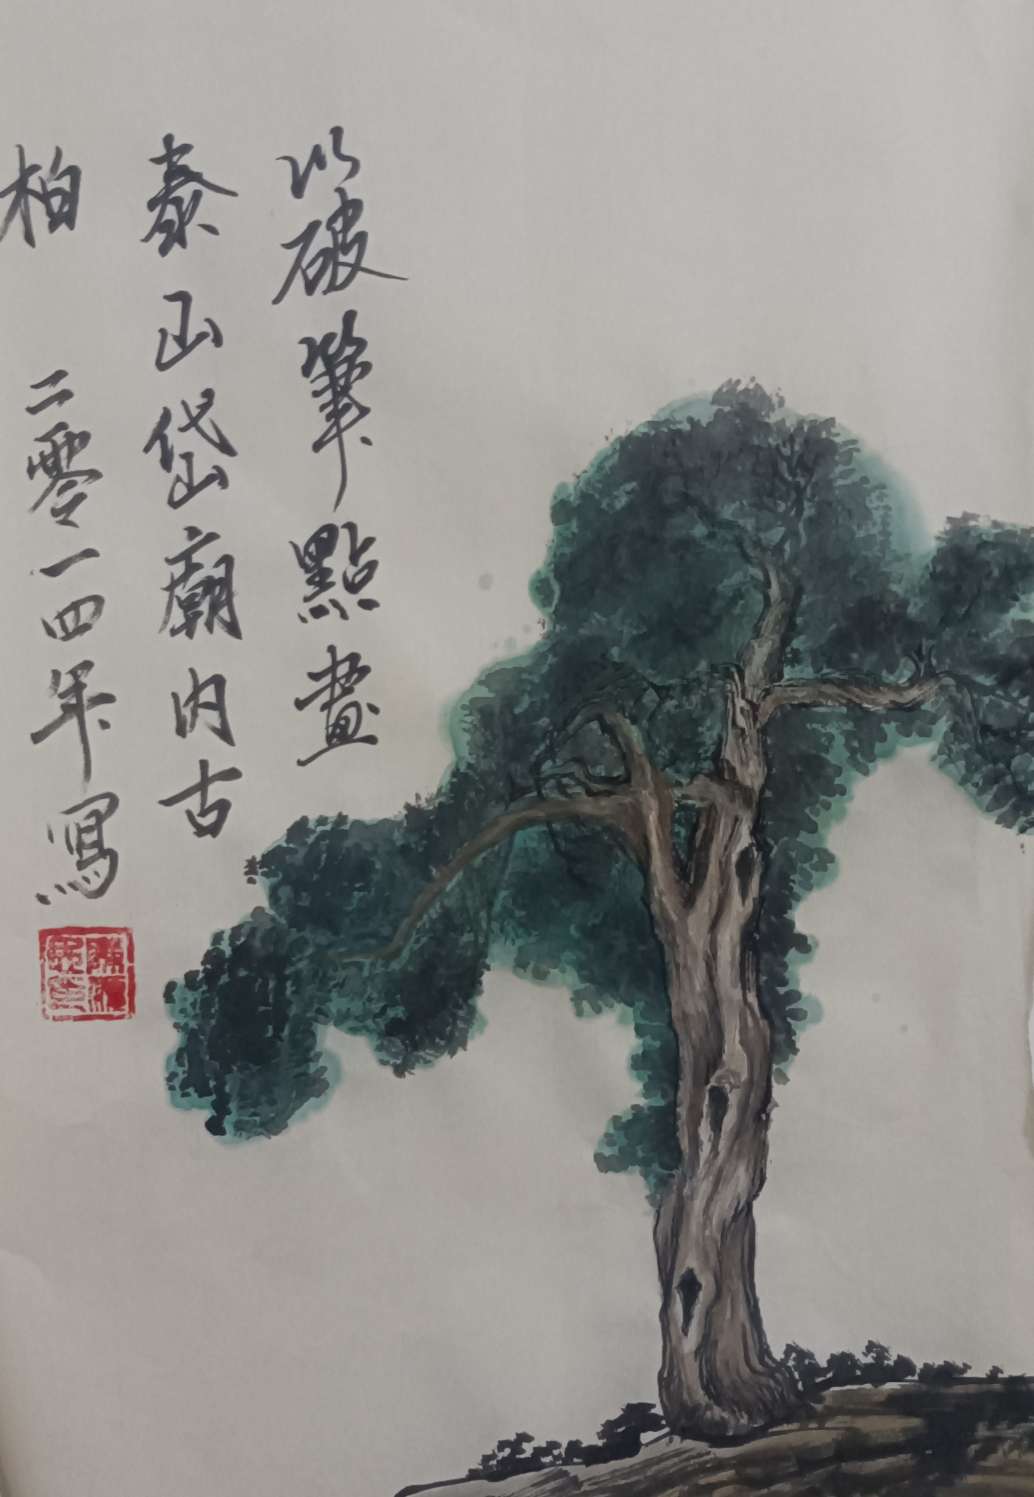 以破筆點畫
泰山岱廟内古
柏 二零一四年寫